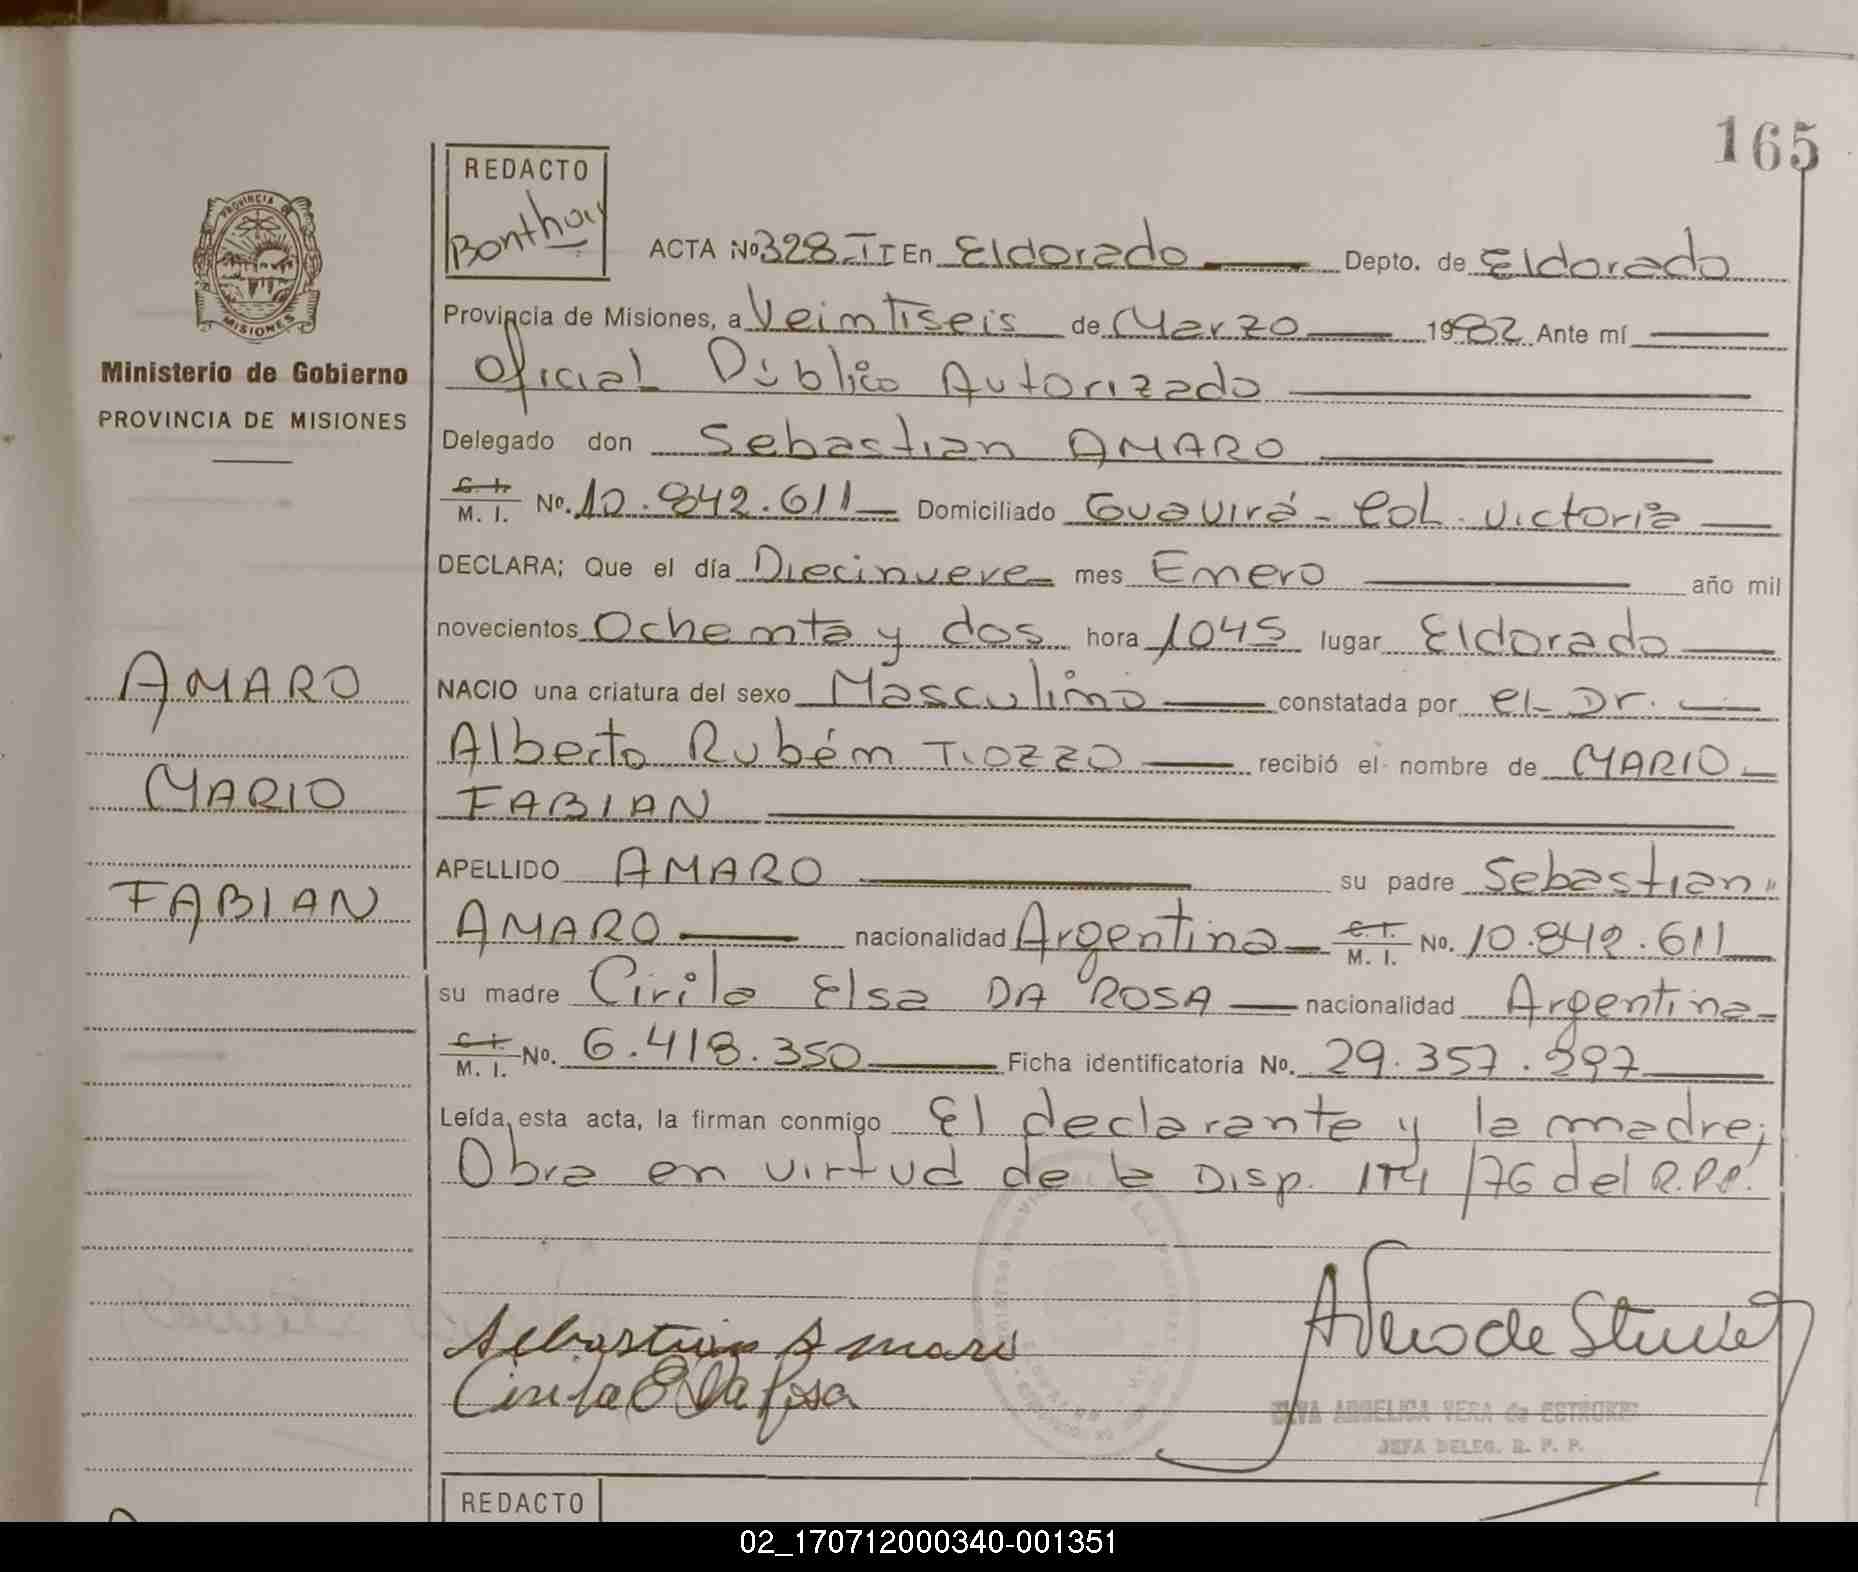 165
REDACTO
PROVINCIA DE
MISIONES
ACTA Nº 328-II En Eldorado Depto. de Eldorado
Provincia de Misiones, a Veintiseis de Marzo 1982 Ante mí
Ministerio de Gobierno
Oficial Público Autorizado
PROVINCIA DE MISIONES
Delegado don Sebastian AMARO
C. I. M. I. No. 10.842.611 Domiciliado Guavirá - Col. Victoria
DECLARA; Que el día Diecinueve mes Enero año mil
novecientos Ochenta y dos hora 1045 lugar Eldorado
AMARO
NACIO una criatura del sexo Masculino constatada por el Dr.
Alberto Rubén TIOZZO recibió el nombre de MARIO
MARIO
FABIAN
APELLIDO AMARO su padre Sebastian
FABIAN
AMARO nacionalidad Argentina C. I. M. I. No. 10.842.611
su madre Cirila Elsa DA ROSA nacionalidad Argentina
C. I. M. I. No. 6.418.350 Ficha identificatoria No. 29.357.997
Leída, esta acta, la firman conmigo El declarante y la madre;
Obra en virtud de la Disp. /76 del R.P.P.
Sebastian Amaro
Cirila E Da Rosa
ANGELICA VERA de
JEFA DELEG. R. P. P.
REDACTO
02_170712000340-001351